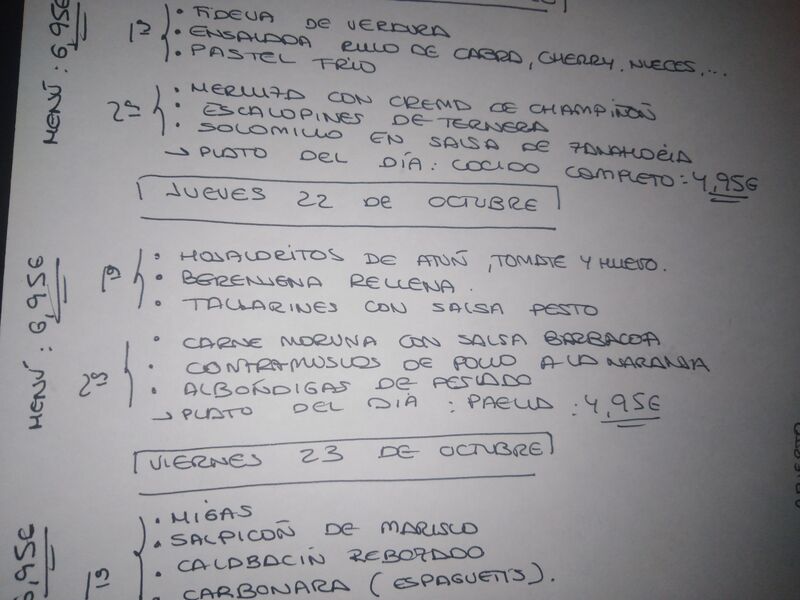 MENÚ: 6,95€
1º
• FIDEUA DE VERDURA
• ENSALADA RULO DE CABRA, CHERRY, NUECES,...
• PASTEL FRÍO
2º
• MERLUZA CON CREMA DE CHAMPIÑOÑ
• ESCALOPINES DE TERNERA
• SOLOMILLO EN SALSA DE ZANAHORIA
→ PLATO DEL DÍA: COCIDO COMPLETO: 4,95€
JUEVES 22 DE OCTUBRE
MENÚ: 6,95€
1º
• HOJALDRITOS DE ATUÑ, TOMATE Y HUEVO.
• BERENJENA RELLENA.
• TALLARINES CON SALSA PESTO
2º
• CARNE MORUNA CON SALSA BARBACOA
• CONTRAMUSLOS DE POLLO A LA NARANJA
• ALBOÑDIGAS DE PESCADO
→ PLATO DEL DIA: PAELLA: 4,95€
VIERNES 23 DE OCTUBRE
6,95€
1º
• MIGAS
• SALPICOÑ DE MARISCO
• CALABACIÑ REBOZADO
• CARBONARA (ESPAGUETIS).